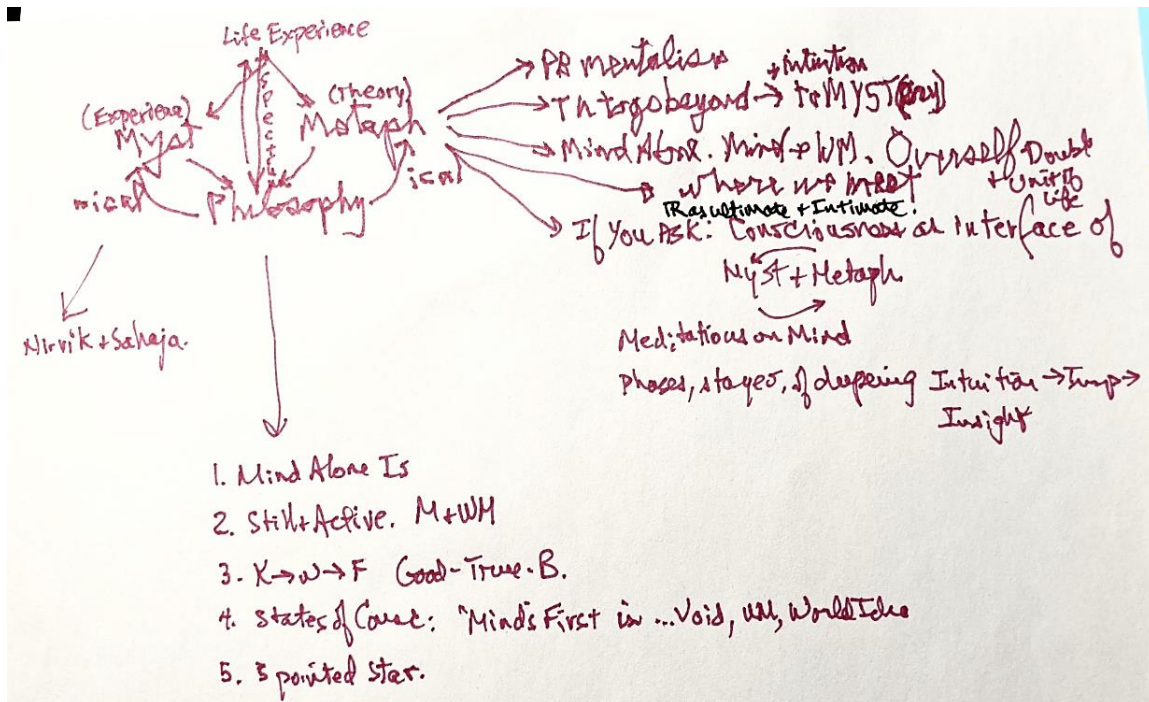 Life Experience
Spectrum
(Experience)
(Theory)
Myst
Metaph
nical
Philosophy
ical
Nirvik + Sahaja.
PB mentalism
+ intuition
Th to go beyond → to MYST
Mind Alone. Mind → WM. Overself Double
where we meet
+ Unit to
Life
as ultimate + Intimate.
If You Ask: Consciousness as interface of
Myst + Metaph.
Meditations on Mind
phases, stages, of deepening Intuition → Jump →
Insight
1. Mind Alone Is
2. Still + Active. M + WM
3. K → W → F Good - True - B.
4. States of Consc: "Mind's First in ... Void, WM, World Idea
5. 5 pointed Star.